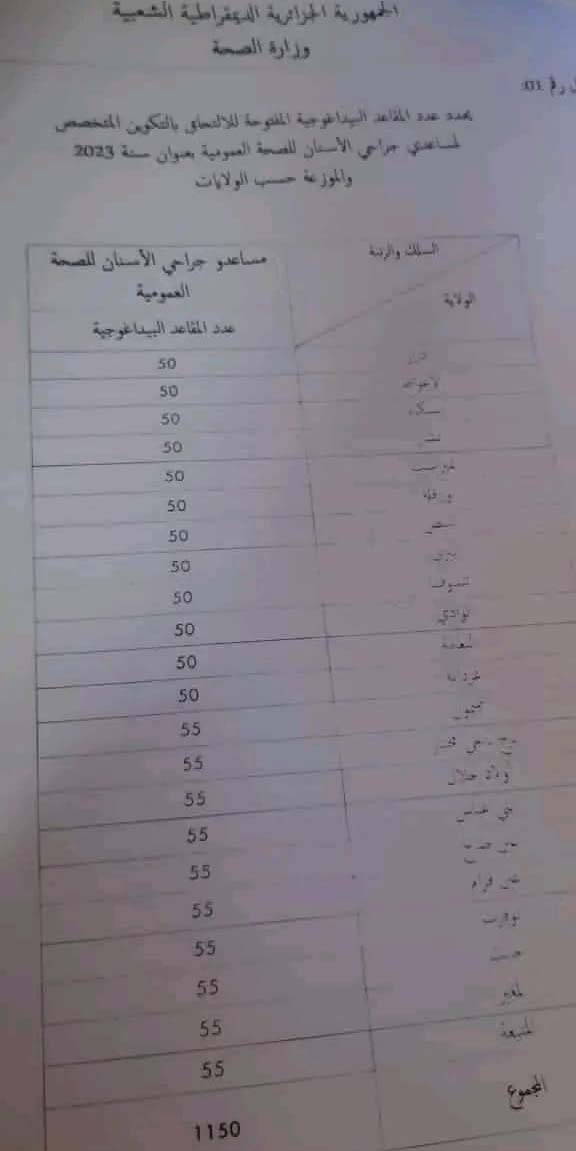 الجمهورية الجزائرية الديمقراطية الشعبية
وزارة الصحة
رقم 01:
يحدد عدد المقاعد البيداغوجية المفتوحة للالتحاق بالتكوين المتخصص
لمساعدي جراحي الأسنان للصحة العمومية بعنوان سنة 2023
والموزعة حسب الولايات
السلك والرتبة
الولاية
مساعدو جراحي الأسنان للصحة
العمومية
عدد المقاعد البيداغوجية
50
50
بسكرة 50
50
50
ورقلة 50
50
50
تندوف 50
الوادي 50
النعامة 50
غرداية 50
55
55
أولاد جلال 55
بني عباس 55
55
عين قزام 55
توقرت 55
55
المغير 55
المنيعة 55
المجموع 1150